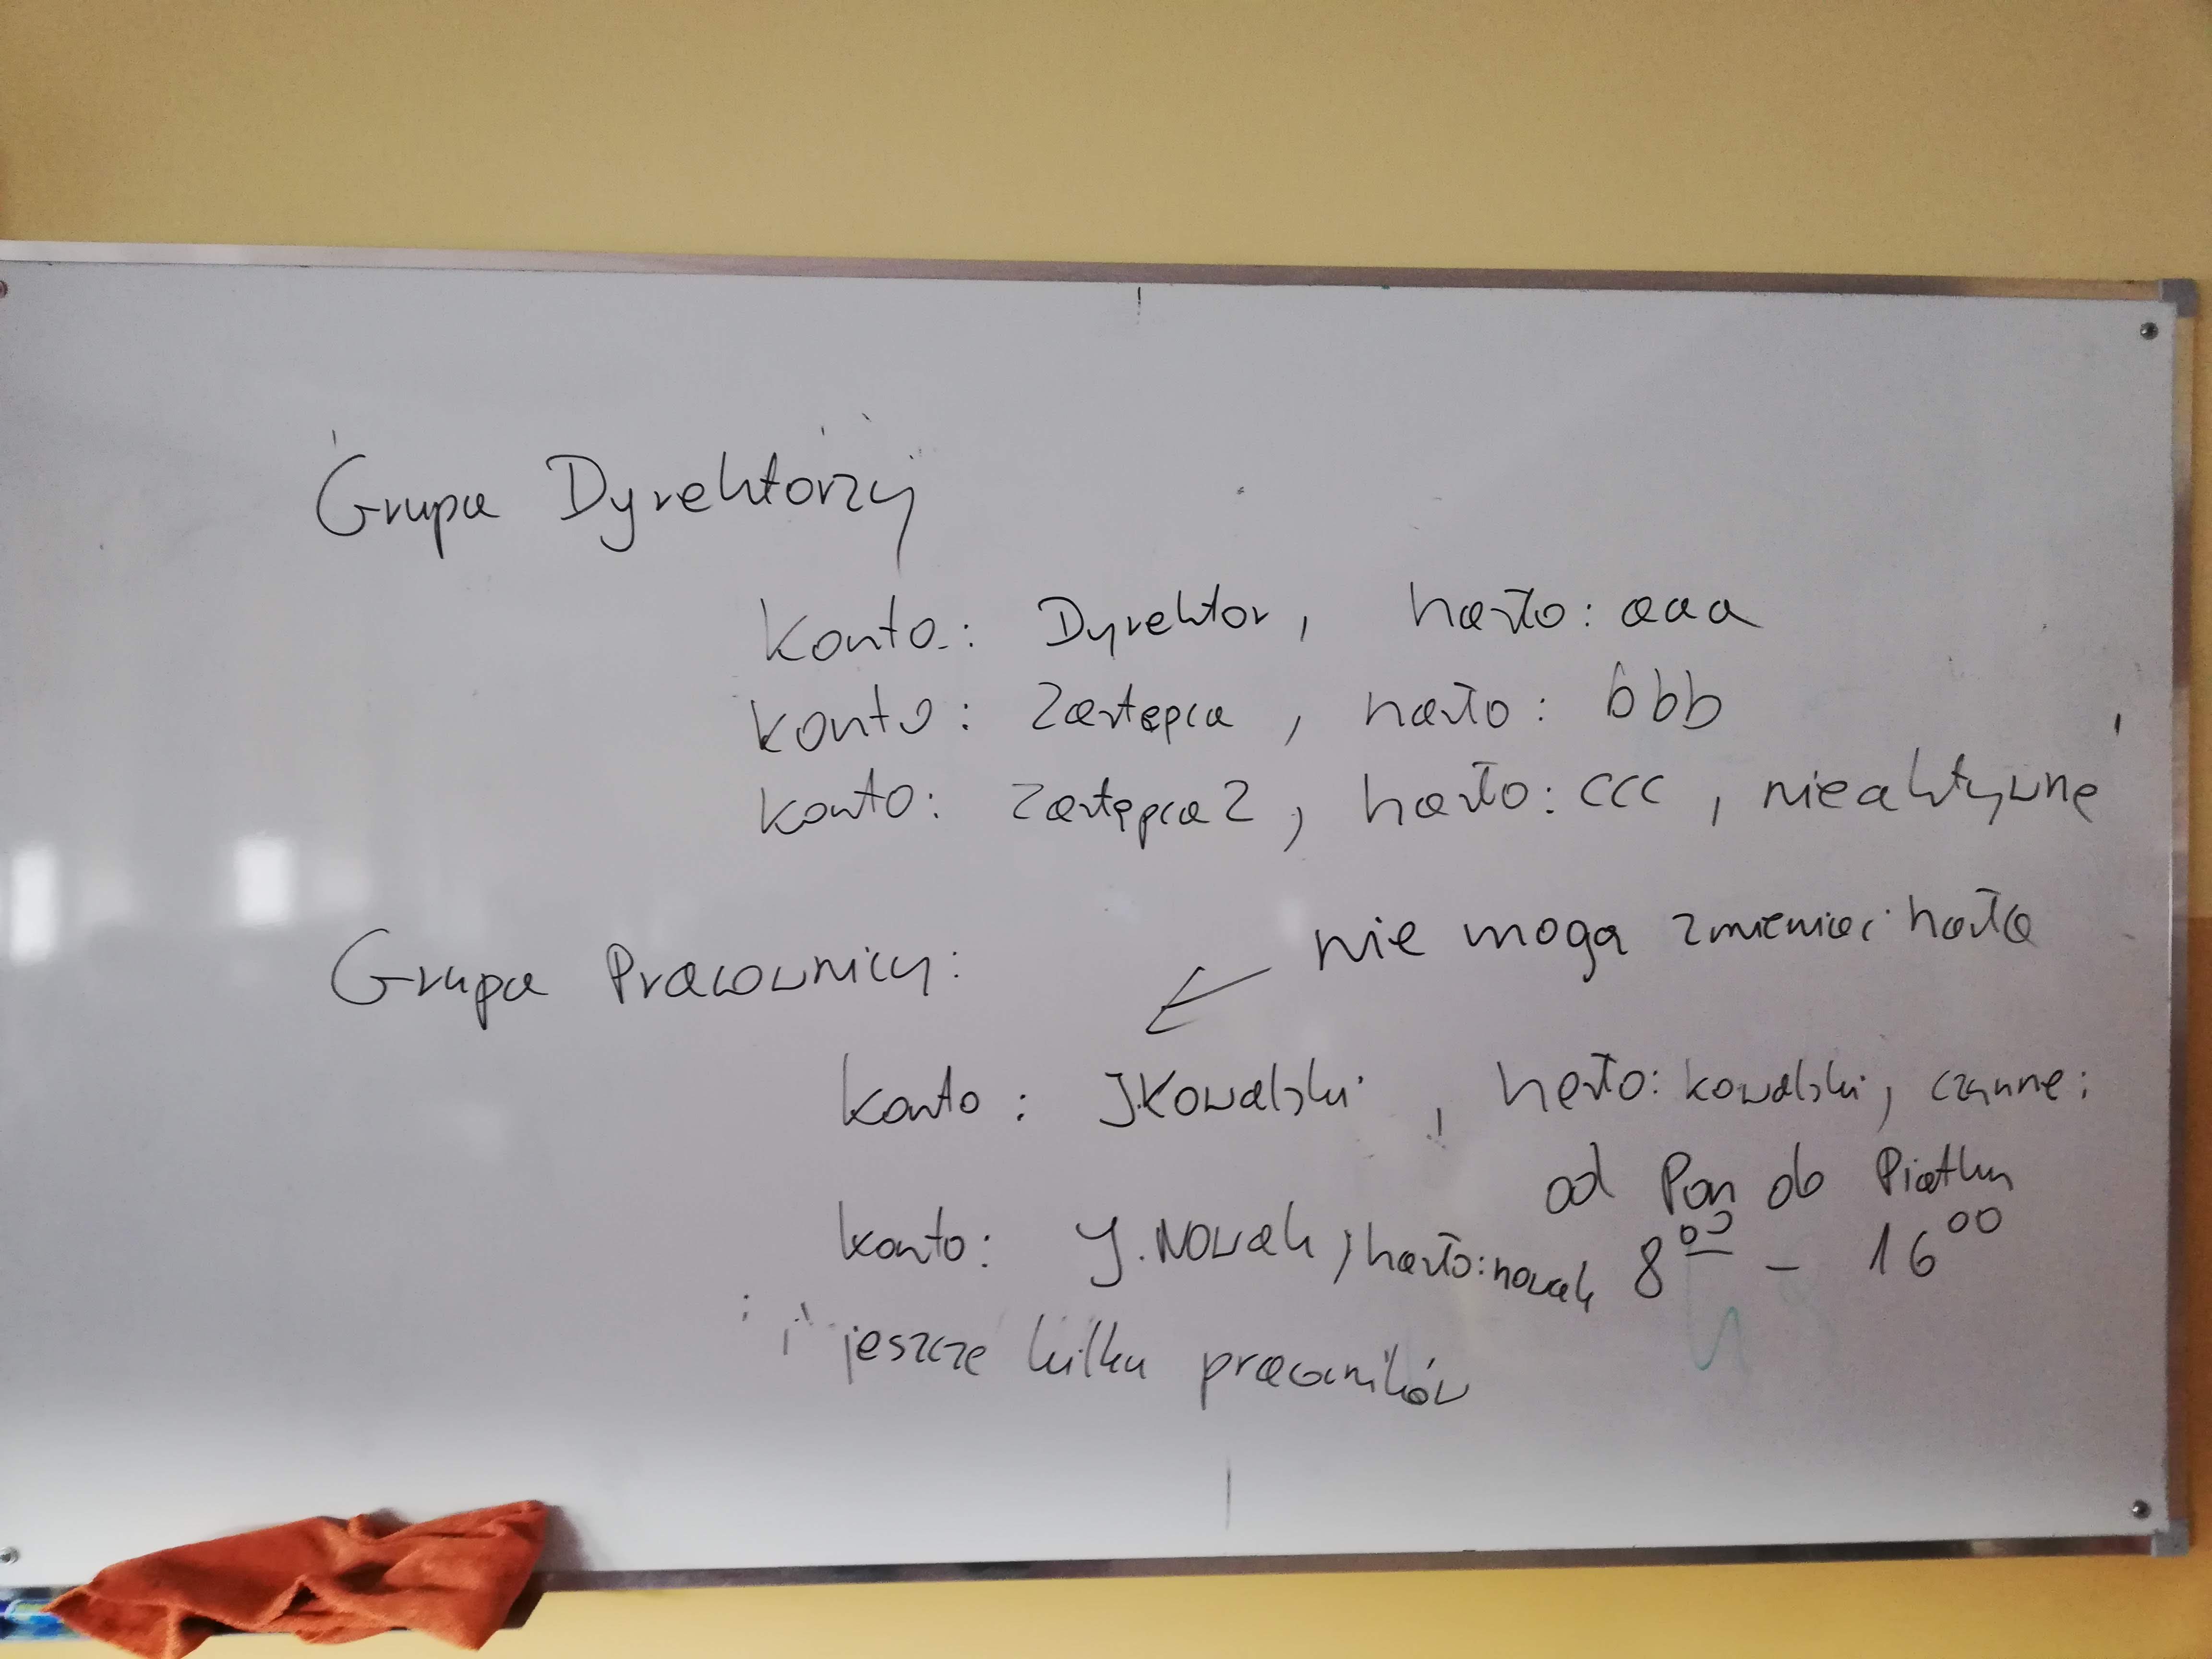 Grupa Dyrektorzy
konto: Dyrektor, hasło: aaa
konto: Zastępca, hasło: bbb
konto: Zastępca2, hasło: ccc, nieaktywne
nie mogą zmieniać hasła
Grupa Pracownicy:
konto: JKowalski, hasło: kowalski, czynne:
od Pon do Piątku
konto: J.Nowak, hasło: nowak 8⁰⁰ – 16⁰⁰
i jeszcze kilku pracowników